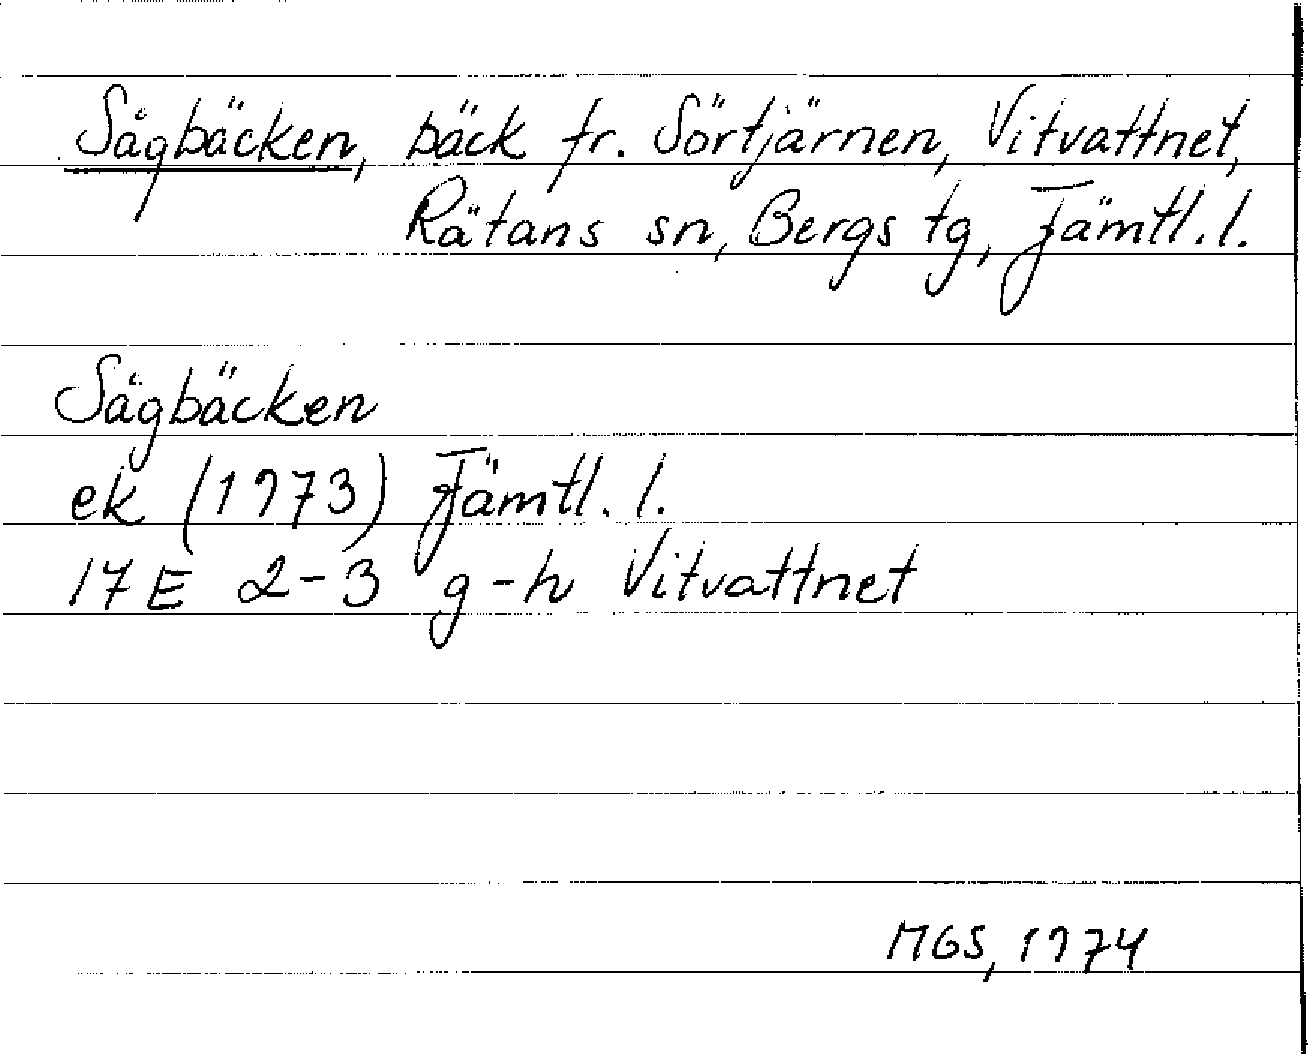 Sågbäcken, bäck fr. Sörtjärnen, Vitvattnet,
Rätans sn, Bergs tg, Jämtl. l.
Sågbäcken
ek (1973) Jämtl. l.
17E 2-3 g-h Vitvattnet
MGS, 1974